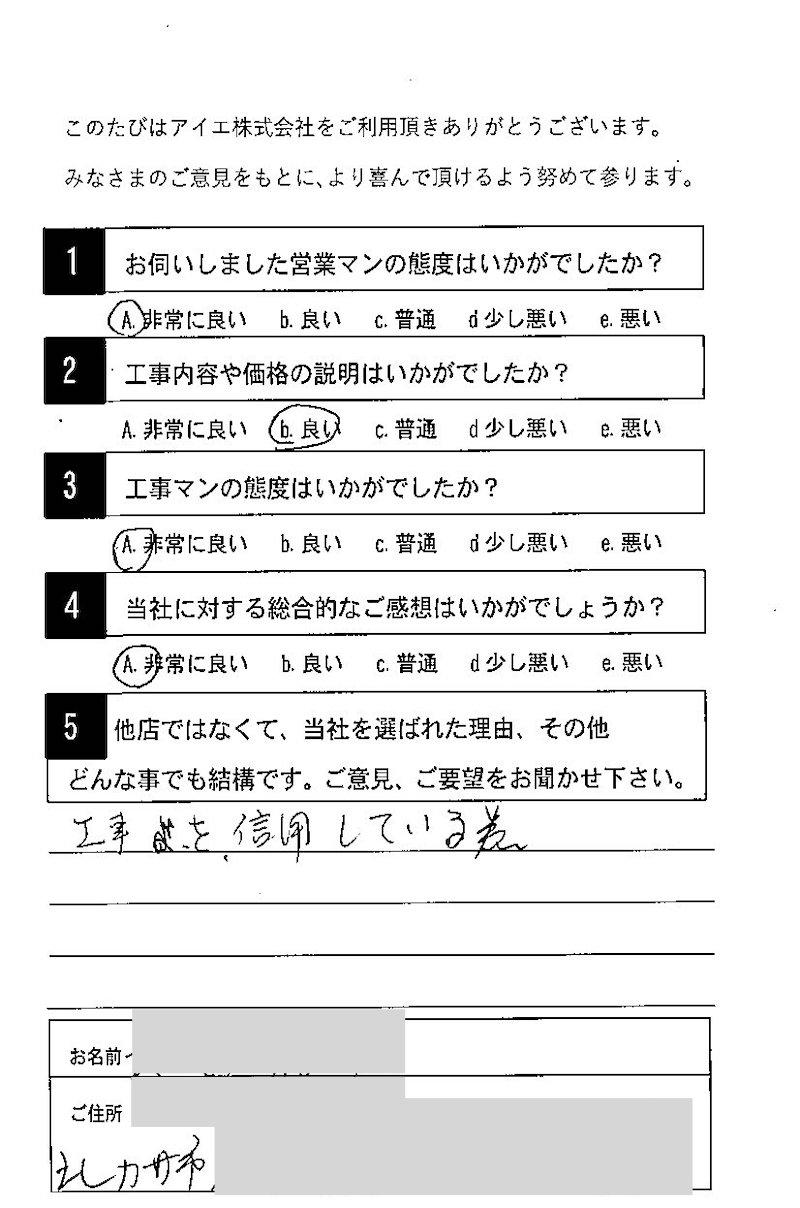 このたびはアイエ株式会社をご利用頂きありがとうございます。
みなさまのご意見をもとに、より喜んで頂けるよう努めて参ります。
1 お伺いしました営業マンの態度はいかがでしたか？
A. 非常に良い b. 良い c. 普通 d 少し悪い e. 悪い
2 工事内容や価格の説明はいかがでしたか？
A. 非常に良い b. 良い c. 普通 d 少し悪い e. 悪い
3 工事マンの態度はいかがでしたか？
A. 非常に良い b. 良い c. 普通 d 少し悪い e. 悪い
4 当社に対する総合的なご感想はいかがでしょうか？
A. 非常に良い b. 良い c. 普通 d 少し悪い e. 悪い
5 他店ではなくて、当社を選ばれた理由、その他
どんな事でも結構です。ご意見、ご要望をお聞かせ下さい。
工事 を信用している
お名前
ご住所
市